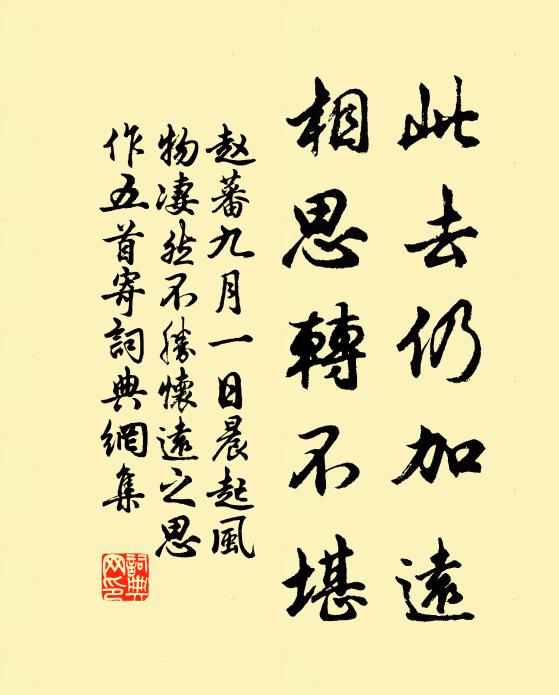 此去仍加遠
相思轉不堪
赵蕃九月一日晨起風
物凄然不勝懷遠之思
作五首寄詞典網集
詞典
网印